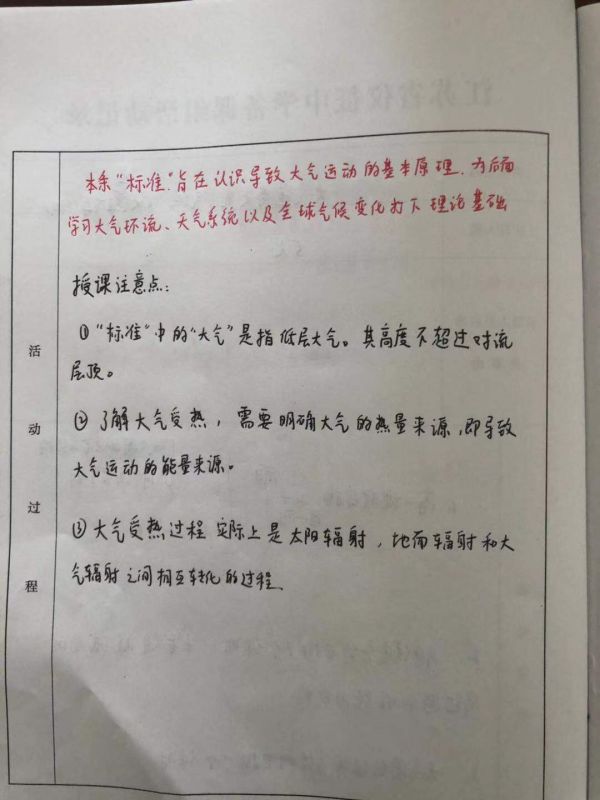 本条“标准”旨在认识导致大气运动的基本原理，为后面
学习大气环流、天气系统以及全球气候变化打下理论基础
授课注意点：
①“标准“中的“大气”是指低层大气。其高度不超过对流
层顶。
②了解大气受热，需要明确大气的热量来源，即导致
大气运动的能量来源。
③大气受热过程实际上是太阳辐射，地面辐射和大
气辐射之间相互转化的过程
活
动
过
程